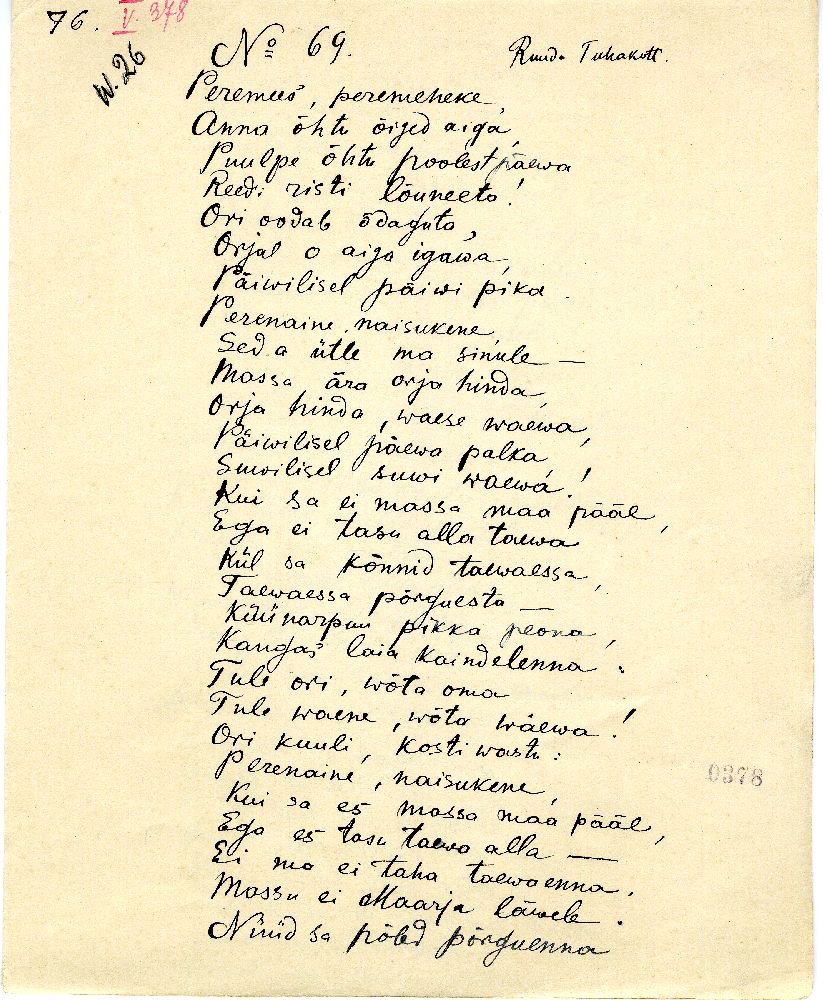 76. V. 378
W. 26
№ 69. Ruudo Tuhakott.
Peremees, peremeheke,
Anna õhtu õiged aiga,
Puulpe õhtu poolest päewa
Reedi risti lõuneeto!
Ori oodab õdaguto,
Orjal o aiga igawa,
Päiwilisel päiwi pika
Perenaine, naisukene,
Seda ütle ma sinule —
Massa ära orja hinda,
Orja hinda, waese waewa,
Päiwilisel päewa palka
Suwilisel suwi waewa!
Kui sa ei massa maa pääl,
Ega ei tasu alla taewa
Kül sa kõnnid taewaessa,
Taewaessa põrguesta —
Küünarpuu pikka peona,
Kangas laia kaindelenna:
Tule ori, wõta oma
Tule waene, wõta wäewa!
Ori kuuli, kosti wastu:
Perenaine, naisukene,
Kui sa es massa maa pääl,
Ega es tasu taewa alla —
Ei ma ei taha taewaenna.
Massu ei Maarja läwele.
Nüüd sa põled põrguenna
0378